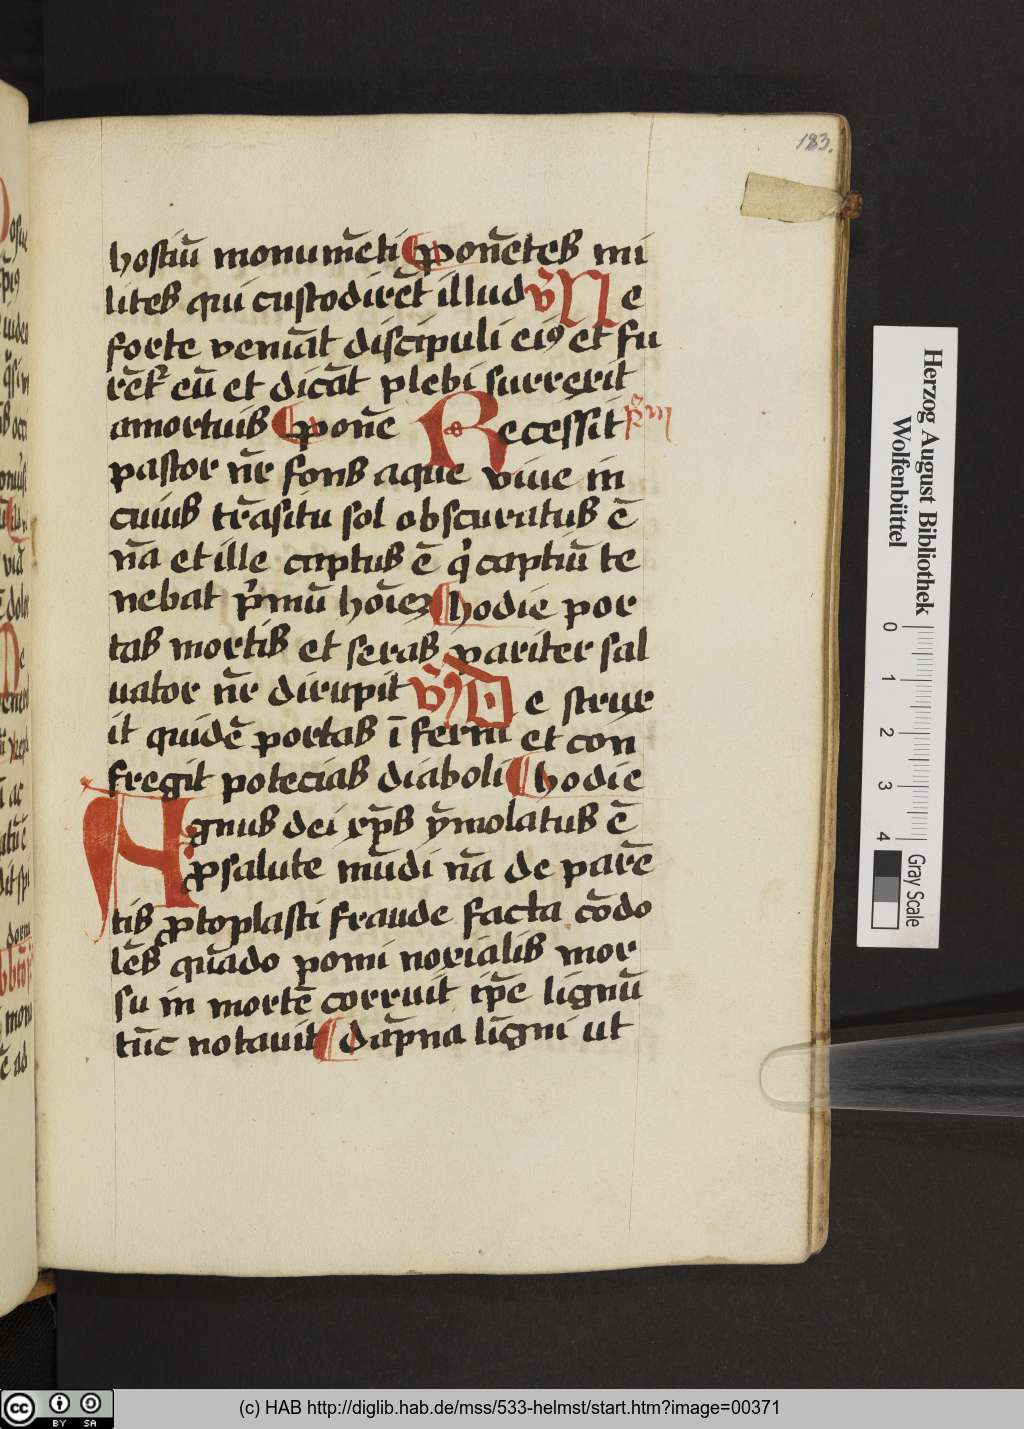 183.
hostiū monumēti ponētes mi
lites qui custodirēt illud v̄ Ne
forte veniāt discipuli ei9 et fu
rēt᷑ eū et dicāt plebi surrexit
amortuis ponē Recessit
pastor nr̄ fons aque viue in
cuius trāsitu sol obscuratus ē
nā et ille captus ē qͥ captiū te
nebat pͥmū hoīeꝫ hodie por
tas mortis et seras pariter sal
uator nr̄ dirupit v̄ De strux
it quidē portas ī ferni et con
fregit potecias diaboli hodie
Agnus dei xp̄s ẏmolatus ē
ꝓ salute mūdi nā de parē
tis ꝓtoplasti fraude facta cōdo
lēs quādo pomi noxialis mor
su in mortē corruit ip̄e lignū
tūc notauit dāpna līgni ut
Herzog August Bibliothek
Wolfenbüttel
0
1
2
3
4
Gray Scale
cc BY SA
(c) HAB http://diglib.hab.de/mss/533-helmst/start.htm?image=00371